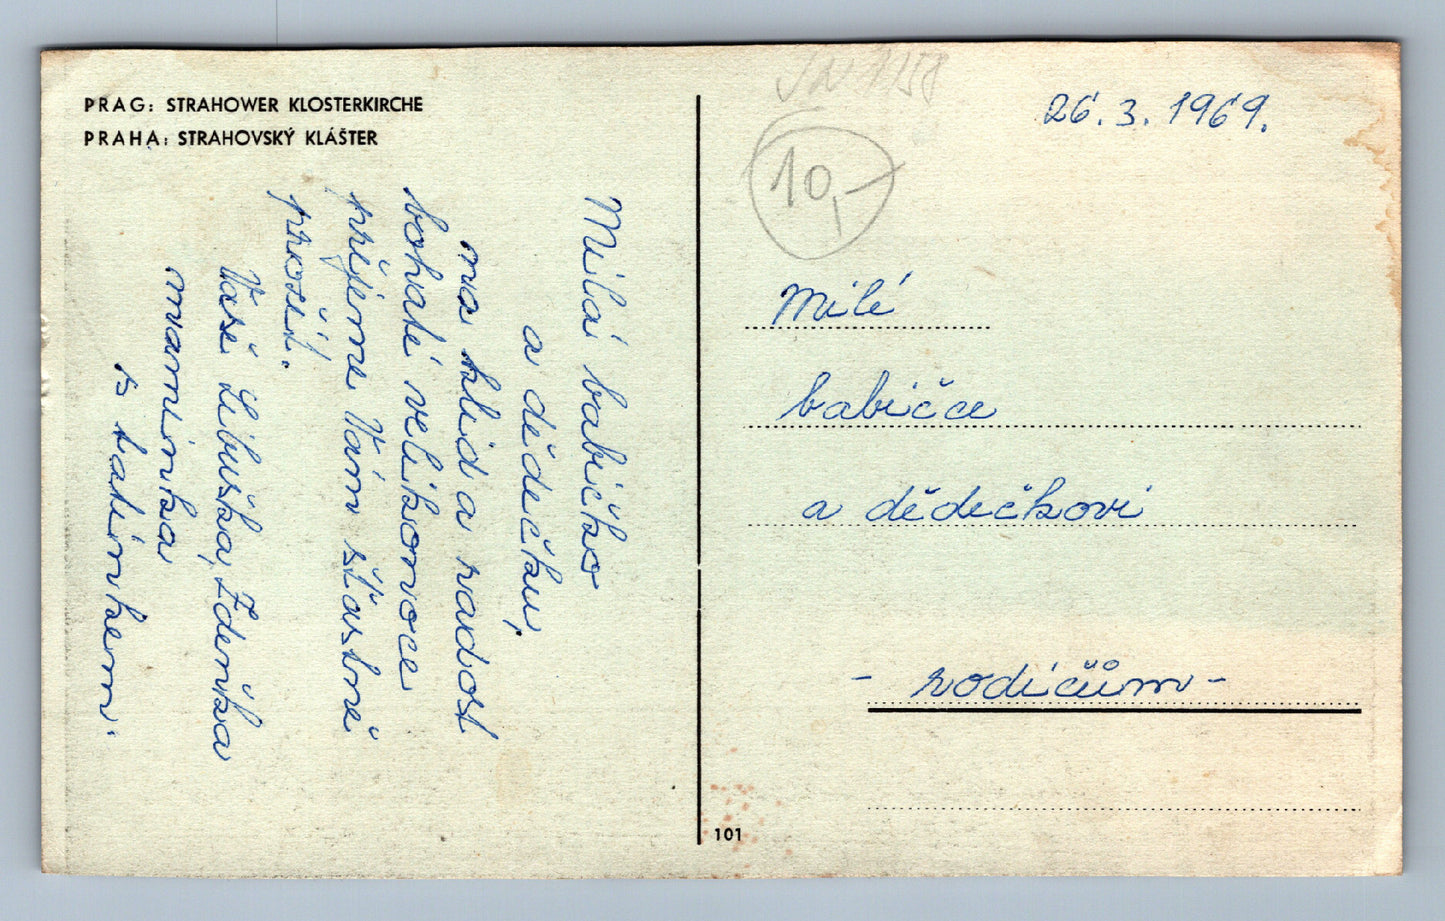 PRAG: STRAHOWER KLOSTERKIRCHE
PRAHA: STRAHOVSKÝ KLÁŠTER
Milá babičko
a dědečku,
na klid a radost
bohaté velikonoce
přijeme Vám šťastné
prostí.
Vaše Libuška, Zdeňka
maminka
s tatínkem.
26. 3. 1969.
10,-
Milé
babičce
a dědečkovi
- rodičům -
101